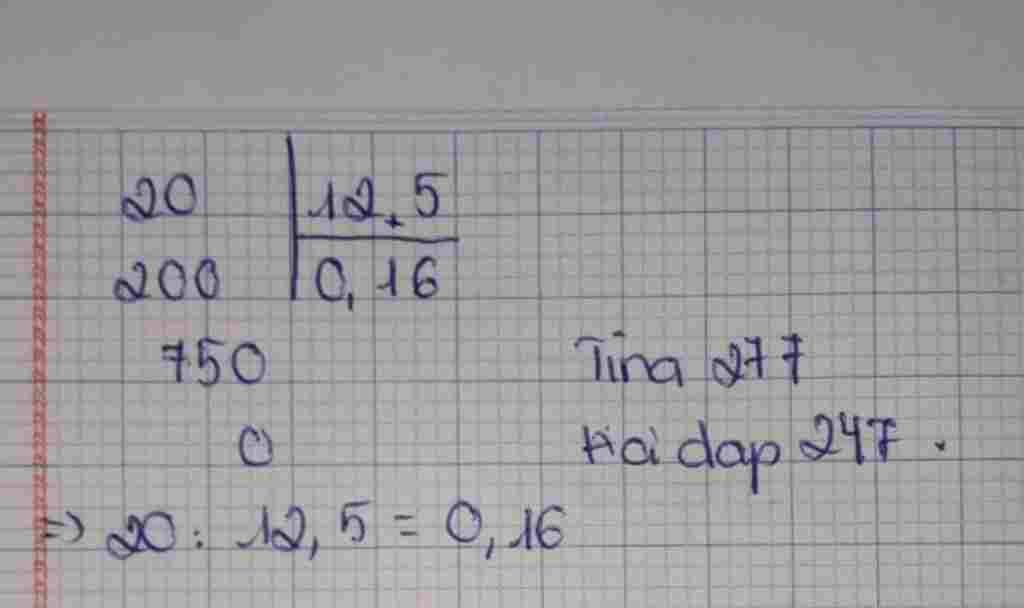 20 12,5
200 0,16
750 Tina 277
0 Hoi dap 247.
=> 20: 12,5 = 0,16